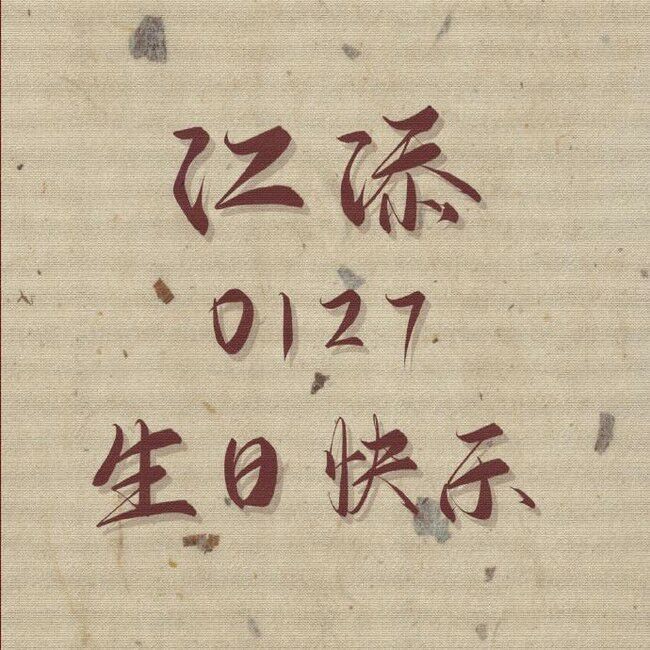 江添
0127
生日快乐